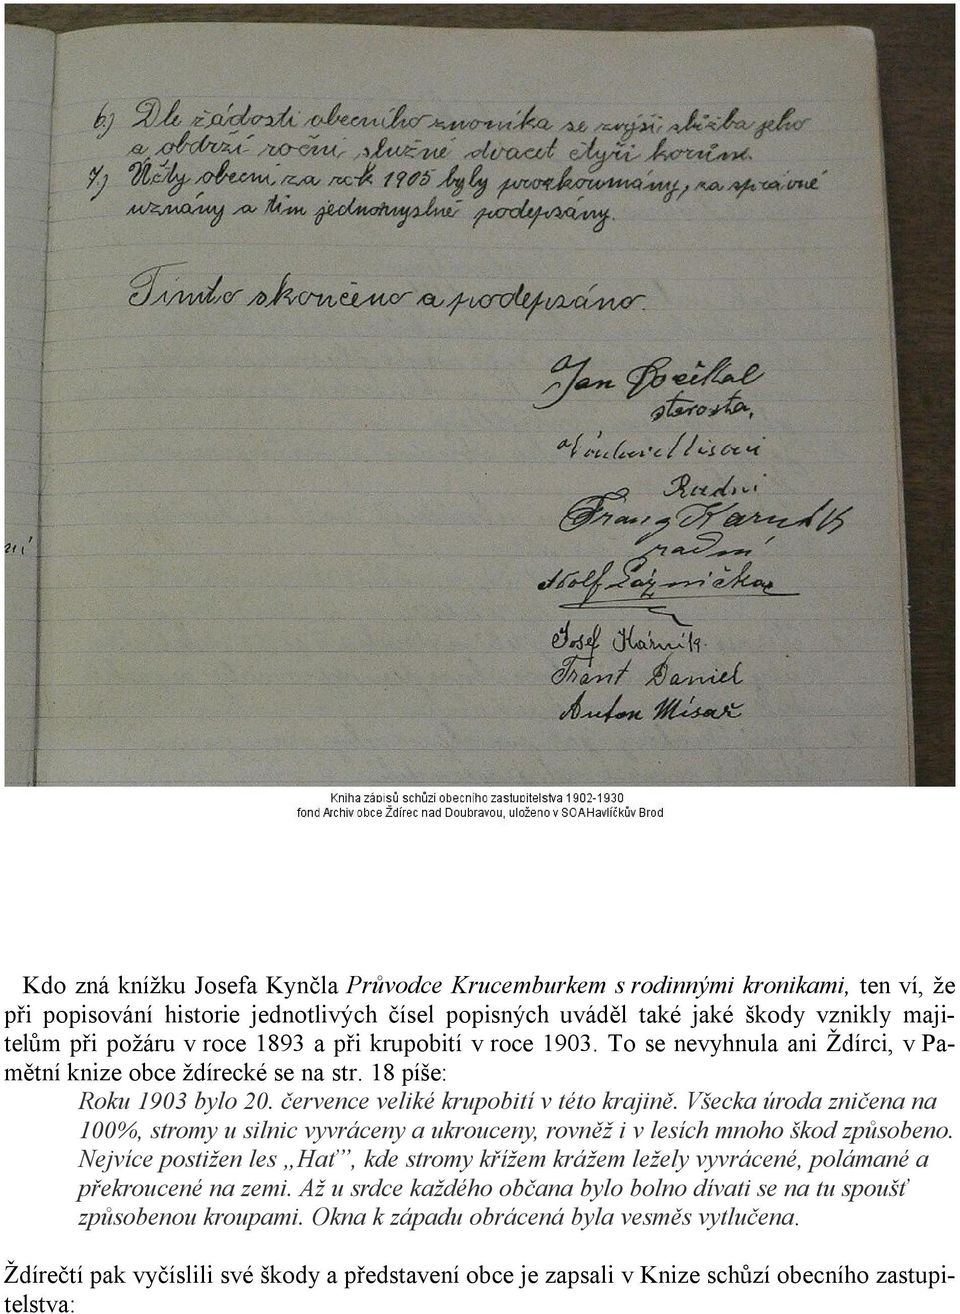 6.) Dle žádosti obecního zvoníka se zvýší služba jeho
a obdrží roční služné dvacet čtyři korun.
7.) Účty obecní za rok 1905 byly prozkoumány, za správné
uznány a tím jednomyslně podepsány.
Tímto skončeno a podepsáno.
Jan Počkal
starosta,
Radní
Franz Karník
radní
ní
Adolf Páznička
Josef Kárník
Frant Daniel
Anton Misař
Kniha zápisů schůzí obecního zastupitelstva 1902-1930
fond Archiv obce Ždírec nad Doubravou, uloženo v SOAHavlíčkův Brod
Kdo zná knížku Josefa Kynčla Průvodce Krucemburkem s rodinnými kronikami, ten ví, že
při popisování historie jednotlivých čísel popisných uváděl také jaké škody vznikly maji-
telům při požáru v roce 1893 a při krupobití v roce 1903. To se nevyhnula ani Ždírci, v Pa-
mětní knize obce ždírecké se na str. 18 píše:
Roku 1903 bylo 20. července veliké krupobití v této krajině. Všecka úroda zničena na
100%, stromy u silnic vyvráceny a ukrouceny, rovněž i v lesích mnoho škod způsobeno.
Nejvíce postižen les „Hať", kde stromy křížem krážem ležely vyvrácené, polámané a
překroucené na zemi. Až u srdce každého občana bylo bolno dívati se na tu spoušť
způsobenou kroupami. Okna k západu obrácená byla vesměs vytlučena.
Ždírečtí pak vyčíslili své škody a představení obce je zapsali v Knize schůzí obecního zastupi-
telstva: